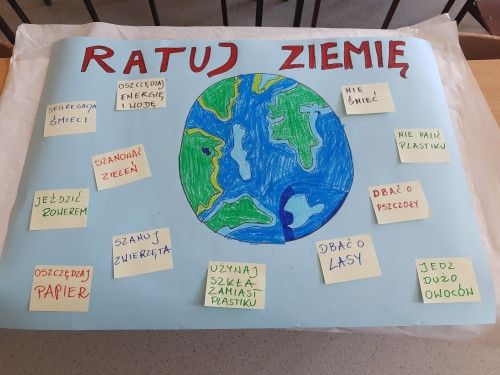 RATUJ ZIEMIĘ
OSZCZĘDZAJ
ENERGIĘ
I WODĘ
SEGREGACJA
ŚMIECI
NIE
ŚMIEĆ
NIE PALIĆ
PLASTIKU
SZANOWAĆ
ZIELEŃ
DBAĆ O
PSZCZOŁY
JEŹDZIĆ
ROWEREM
SZANUJ
ZWIERZĘTA
DBAĆ O
LASY
OSZCZĘDZAJ
PAPIER
UŻYWAJ
SZKŁA
ZAMIAST
PLASTIKU
JEDZ
DUŻO
OWOCÓW